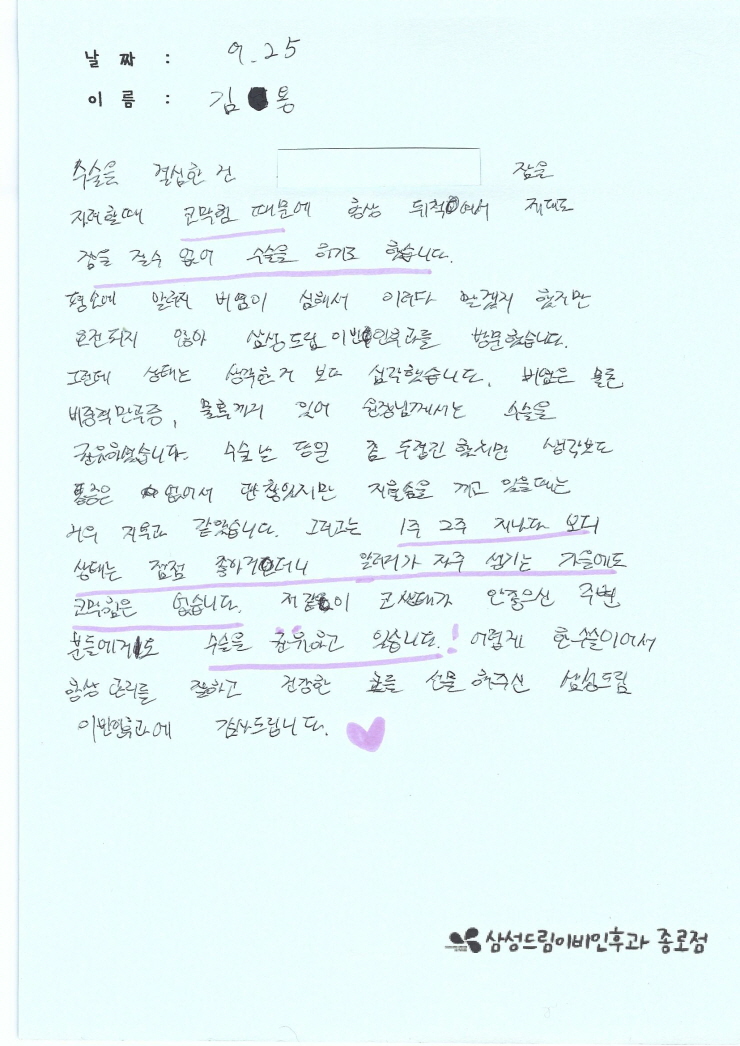 날 짜 : 9. 25
이 름 : 김 용
수술을 결심한 건 잠을
자려할때 코막힘 때문에 항상 뒤척여서 제대로
잠을 잘수 없어 수술을 하기로 했습니다.
평소에 알러지 비염이 심해서 이러다 말겠지 했지만
호전되지 않아 삼성드림이비인후과를 방문했습니다.
그런데 상태는 생각한거 보다 심각했습니다. 비염은 물론
비중격만곡증, 물혹까지 있어 원장님께서는 수술을
권유하였습니다. 수술는 당일 좀 두렵긴 했지만 생각보다
통증은 없어서 괜찮았지만 지혈솜을 끼고 있을때는
거의 지옥과 같았습니다. 그리고는 1주 2주 지나다 보니
상태는 점점 좋아지더니 알러지가 자주 생기는 가을에도
코막힘은 없습니다. 저같이 코상태가 안좋으신 주변
분들에게도 수술을 권유하고 있습니다.! 어렵게 한 수술이어서
항상 관리를 잘하고 건강한 코를 선물해주신 삼성드림
이비인후과에 감사드립니다.
삼성드림이비인후과 종로점